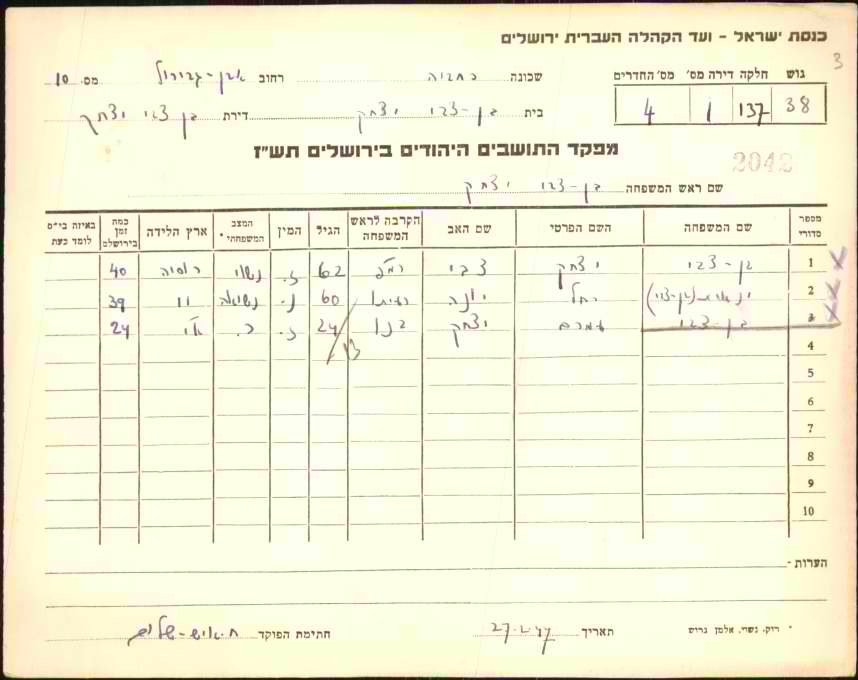 כנסת ישראל - ועד הקהלה העברית ירושלים
3
גוש חלקה דירה מס' מס' החדרים
38 137 1 4
שכונה רחביה רחוב אבן-גבירול מס. 10
בית בן-צבי יצחק דירת בן צבי יצחק
מפקד התושבים היהודים בירושלים תש"ז
2042
שם ראש המשפחה בן-צבי יצחק
מספר סדורי שם המשפחה השם הפרטי שם האב הקרבה לראש המשפחה הגיל המין המצב המשפחתי * ארץ הלידה כמה זמן בירושלם באיזה בי"ס לומד כעת
1 בן-צבי יצחק צבי רמ"פ 62 ז. נשוי רוסיה 40
2 ינאית (בן-צבי) רחל יונה רעיתו 60 נ. נשואה " 39
3 בן-צבי עמרם יצחק בנו 24 ז. ר. א"י 24
4
5
6
7
8
9
10
הערות -
* רוק, נשוי, אלמן גרוש תאריך 27.2.47 חתימת הפוקד ח. איש-שלום